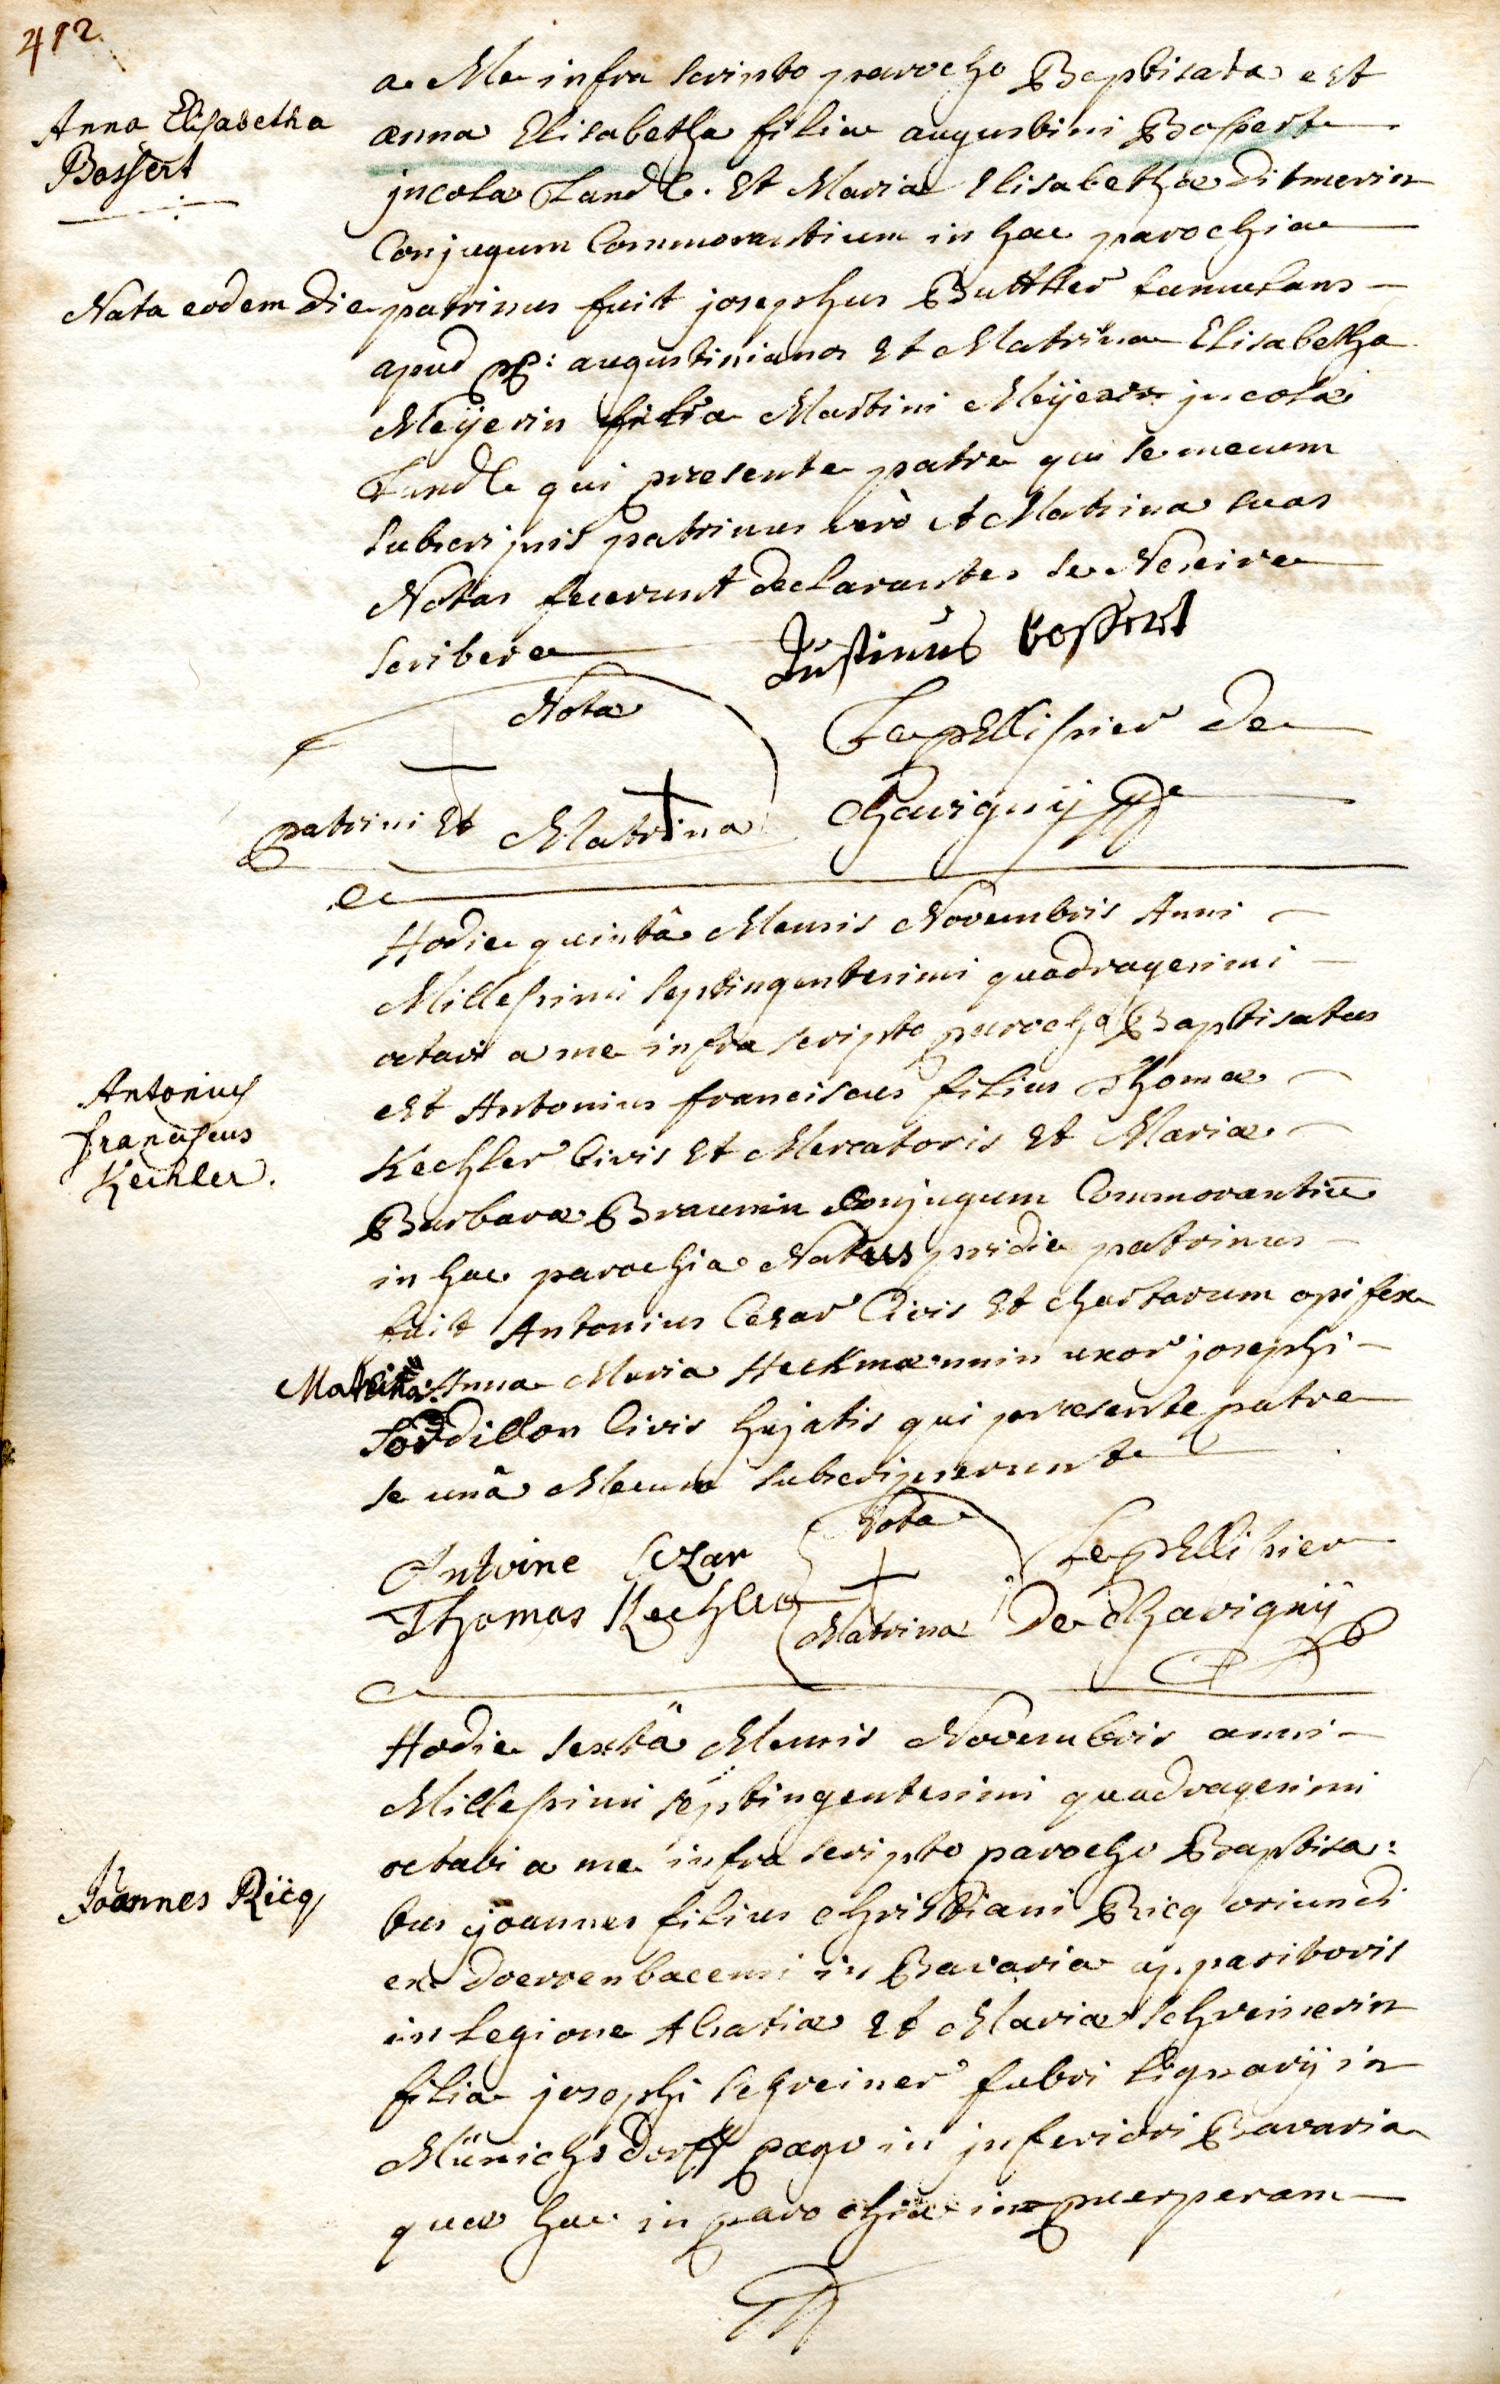 412.
Anna Elisabetha
Bossert
a Me infra scripto parocho Baptisata est
anna Elisabetha filia augustini Bossert
jncolæ Landæ. Et Mariæ Elisabethæ Ditmerin
Conjugum Commorantium in hac parochia
Nata eodem die patrinus fuit josephus Buttler famulans
apud pp: augustinianos Et Matrina Elisabetha
Meÿerin filia Martini Meÿer jncolæ
qui presente patre qui se mecum
subscripsit patrinus verò et Matrina suas
Notas fecerunt declarantes se Nescire
scribere
Justinus bossert
Nota
patrini Et Matrina
Lepellissier de
Chavignÿ
Hodie quintâ Mensis Novembris Anni
Millessimi septingentesimi quadragesimi
octavi a me infra scripto parocho Baptisatus
est Antonius franciscus filius Thomæ
Kechler Civis Et Mercatoris Et Mariæ
Barbaræ Braunin Conjugum Commorantiū
in hac parochia Natus pridie patrinus
fuit Antonius Cesar Civis Et chartarum opifex
Matrina Anna Maria Heckmannin uxor josephi
Sordillon Civis hujatis qui præsente patre
se unâ Mecum subscripserunt
Antonius
franciscus
Kechler.
Antoine Cezar
Thomas Kechler
Nota
Matrina
Lepellissier
De Chavignÿ
Hodie sextâ Mensis Novembris anni
Millessimi septingentesimi quadragesimi
octavi a me infra scripto parocho Baptisa:
tus joannes filius christiani Ricq oriundi
ex Doerrenbacensi in Bavaria apparitoris
in legione Alsatiæ Et Mariæ schreinerin
filia josephi schreiner fabri lignarÿ in
Münichsdorff pago in jnferiori Bavaria
quæ hac in parochia in puerperam
Joannes Ricq